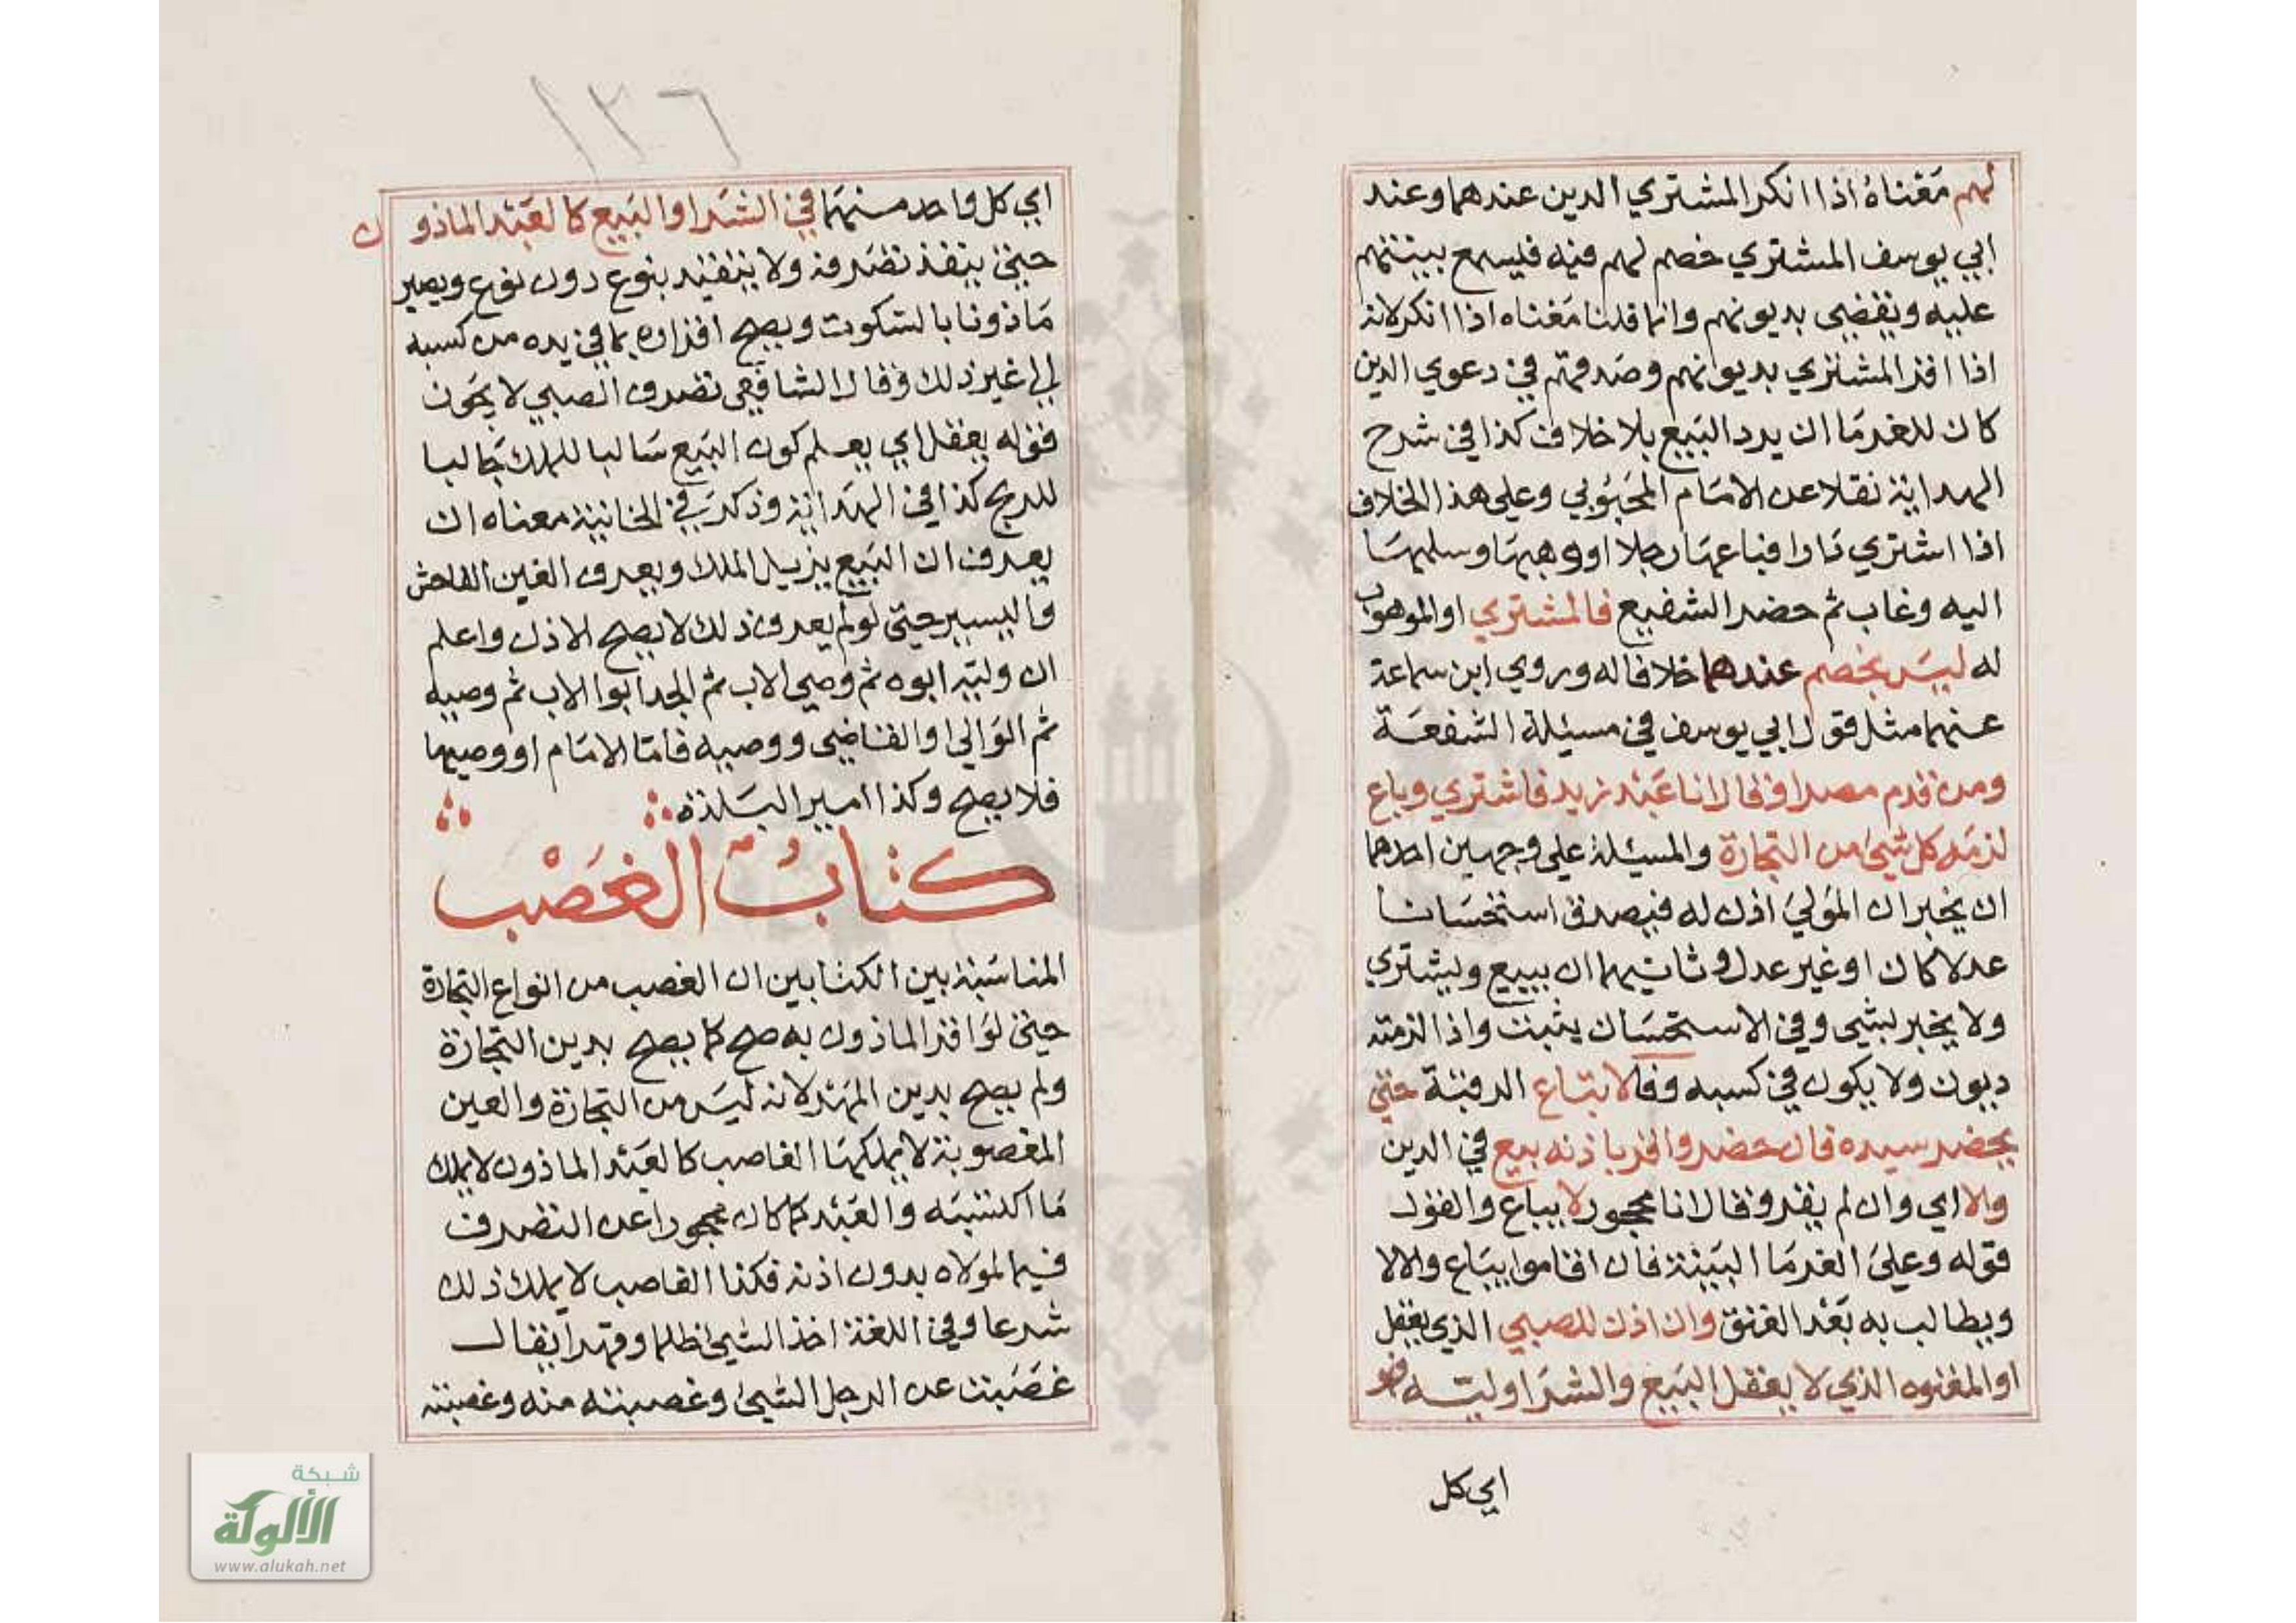 لهم مَعْناهُ اذا انكر المشتري الدين عندهما وعند
ابي يوسف المشتري خصم لهم فيه فيسمع ببينتهم
عليه ويقضي بديونهم وانما قلنا مَعْناه اذا انكر لانه
اذا اقر المشتري بديونهم وصدقهم في دعوي الدين
كان للغرما ان يرد البَيع بلا خلاف كذا في شرح
الهداية نقلا عن الامَام المَحبُوبي وعلي هذا الخلاف
اذا اشتري دَارا فباعهَا رجلا او وهبهَا وسلمهَا
اليه وغاب ثم حضر الشفيع فالمشتري او الموهوب
له ليسَ بخصم عندهما خلافا له وروي ابن سماعة
عنهما مثل قول ابي يوسف في مسيلة الشفعَة
ومن قدم مصرا وقال انا عَبْد زيد فاشتري وباع
لزمَه كل شيئ من التجارة والمسيلة علي وجهين احدهما
ان يخبر ان المَولي اذن له فيصدق استحسَانا
عدلا كان او غير عدل وثانيهما ان يبيع ويشتري
ولا يخبر بشيي وفي الاستحسَان يثبت واذا لزمته
ديون ولا يكون في كسبه وفا لا تبَاع الرقبَة حتي
يحضر سيده فان حضر واقر باذنه بيع في الدين
والا اي وان لم يقر وقال انا محجور لا يباع والقول
قوله وعلي الغرمَا البَينة فان اقاموا يبَاع والا لا
ويطالب به بَعْد العتق وان اذن للصبي الذي يعقل
او المعتوه الذي لا يعقل البَيع والشرَا وليّه فهو
اي كل
١٣٦
اي كل واحد منهمَا في الشرَا والبَيع كالعَبْد الماذون
حتي ينفذ تصَرفه ولا يتقيد بنوع دون نوع ويصير
مَاذونا بالسكوت ويصح اقراره بما في يده من كسبه
الي غير ذلك وقال الشافعي تصرف الصبي لا يجَوز
فقوله يعقل اي يعلم كون البَيع سَالبا للملك جَالبا
للربح كذا في الهدَاية وذكرَ في الخانية معناه ان
يعرف ان البَيع يزيل الملك ويعرف الغبن الفاحش
واليسير حتي لو لم يعرف ذلك لا يصح الاذن واعلم
ان وليّه ابوه ثم وصي الاب ثم الجد ابوا الاب ثم وصيه
ثم الوَالي او القاضي ووصيه فامّا الامَام او وصيهما
فلا يصح وكذا امير البَلدة
كتابُ الغَصْب
المناسَبة بين الكتابين ان الغصب من انواع التجارة
حتي لوَ اقر الماذون به صح كما يصح بدين التجَارة
ولم يصح بدين المهَر لانه ليسَ من التجَارة والعين
المغصوبة لا يملكهَا الغاصب كالعَبْد الماذون لا يملك
مَا اكتسَبَه والعَبْد كما كان محجورا عن التصرف
فيما لمولاه بدون اذنه فكذا الغاصب لا يملك ذلك
شرعا وفي اللغة اخذ الشيئ ظلما وقهرا يقال
غصَبت عن الرجل الشيئ وغصبته منه وغصبته
شبكة
الألوكة
www.alukah.net